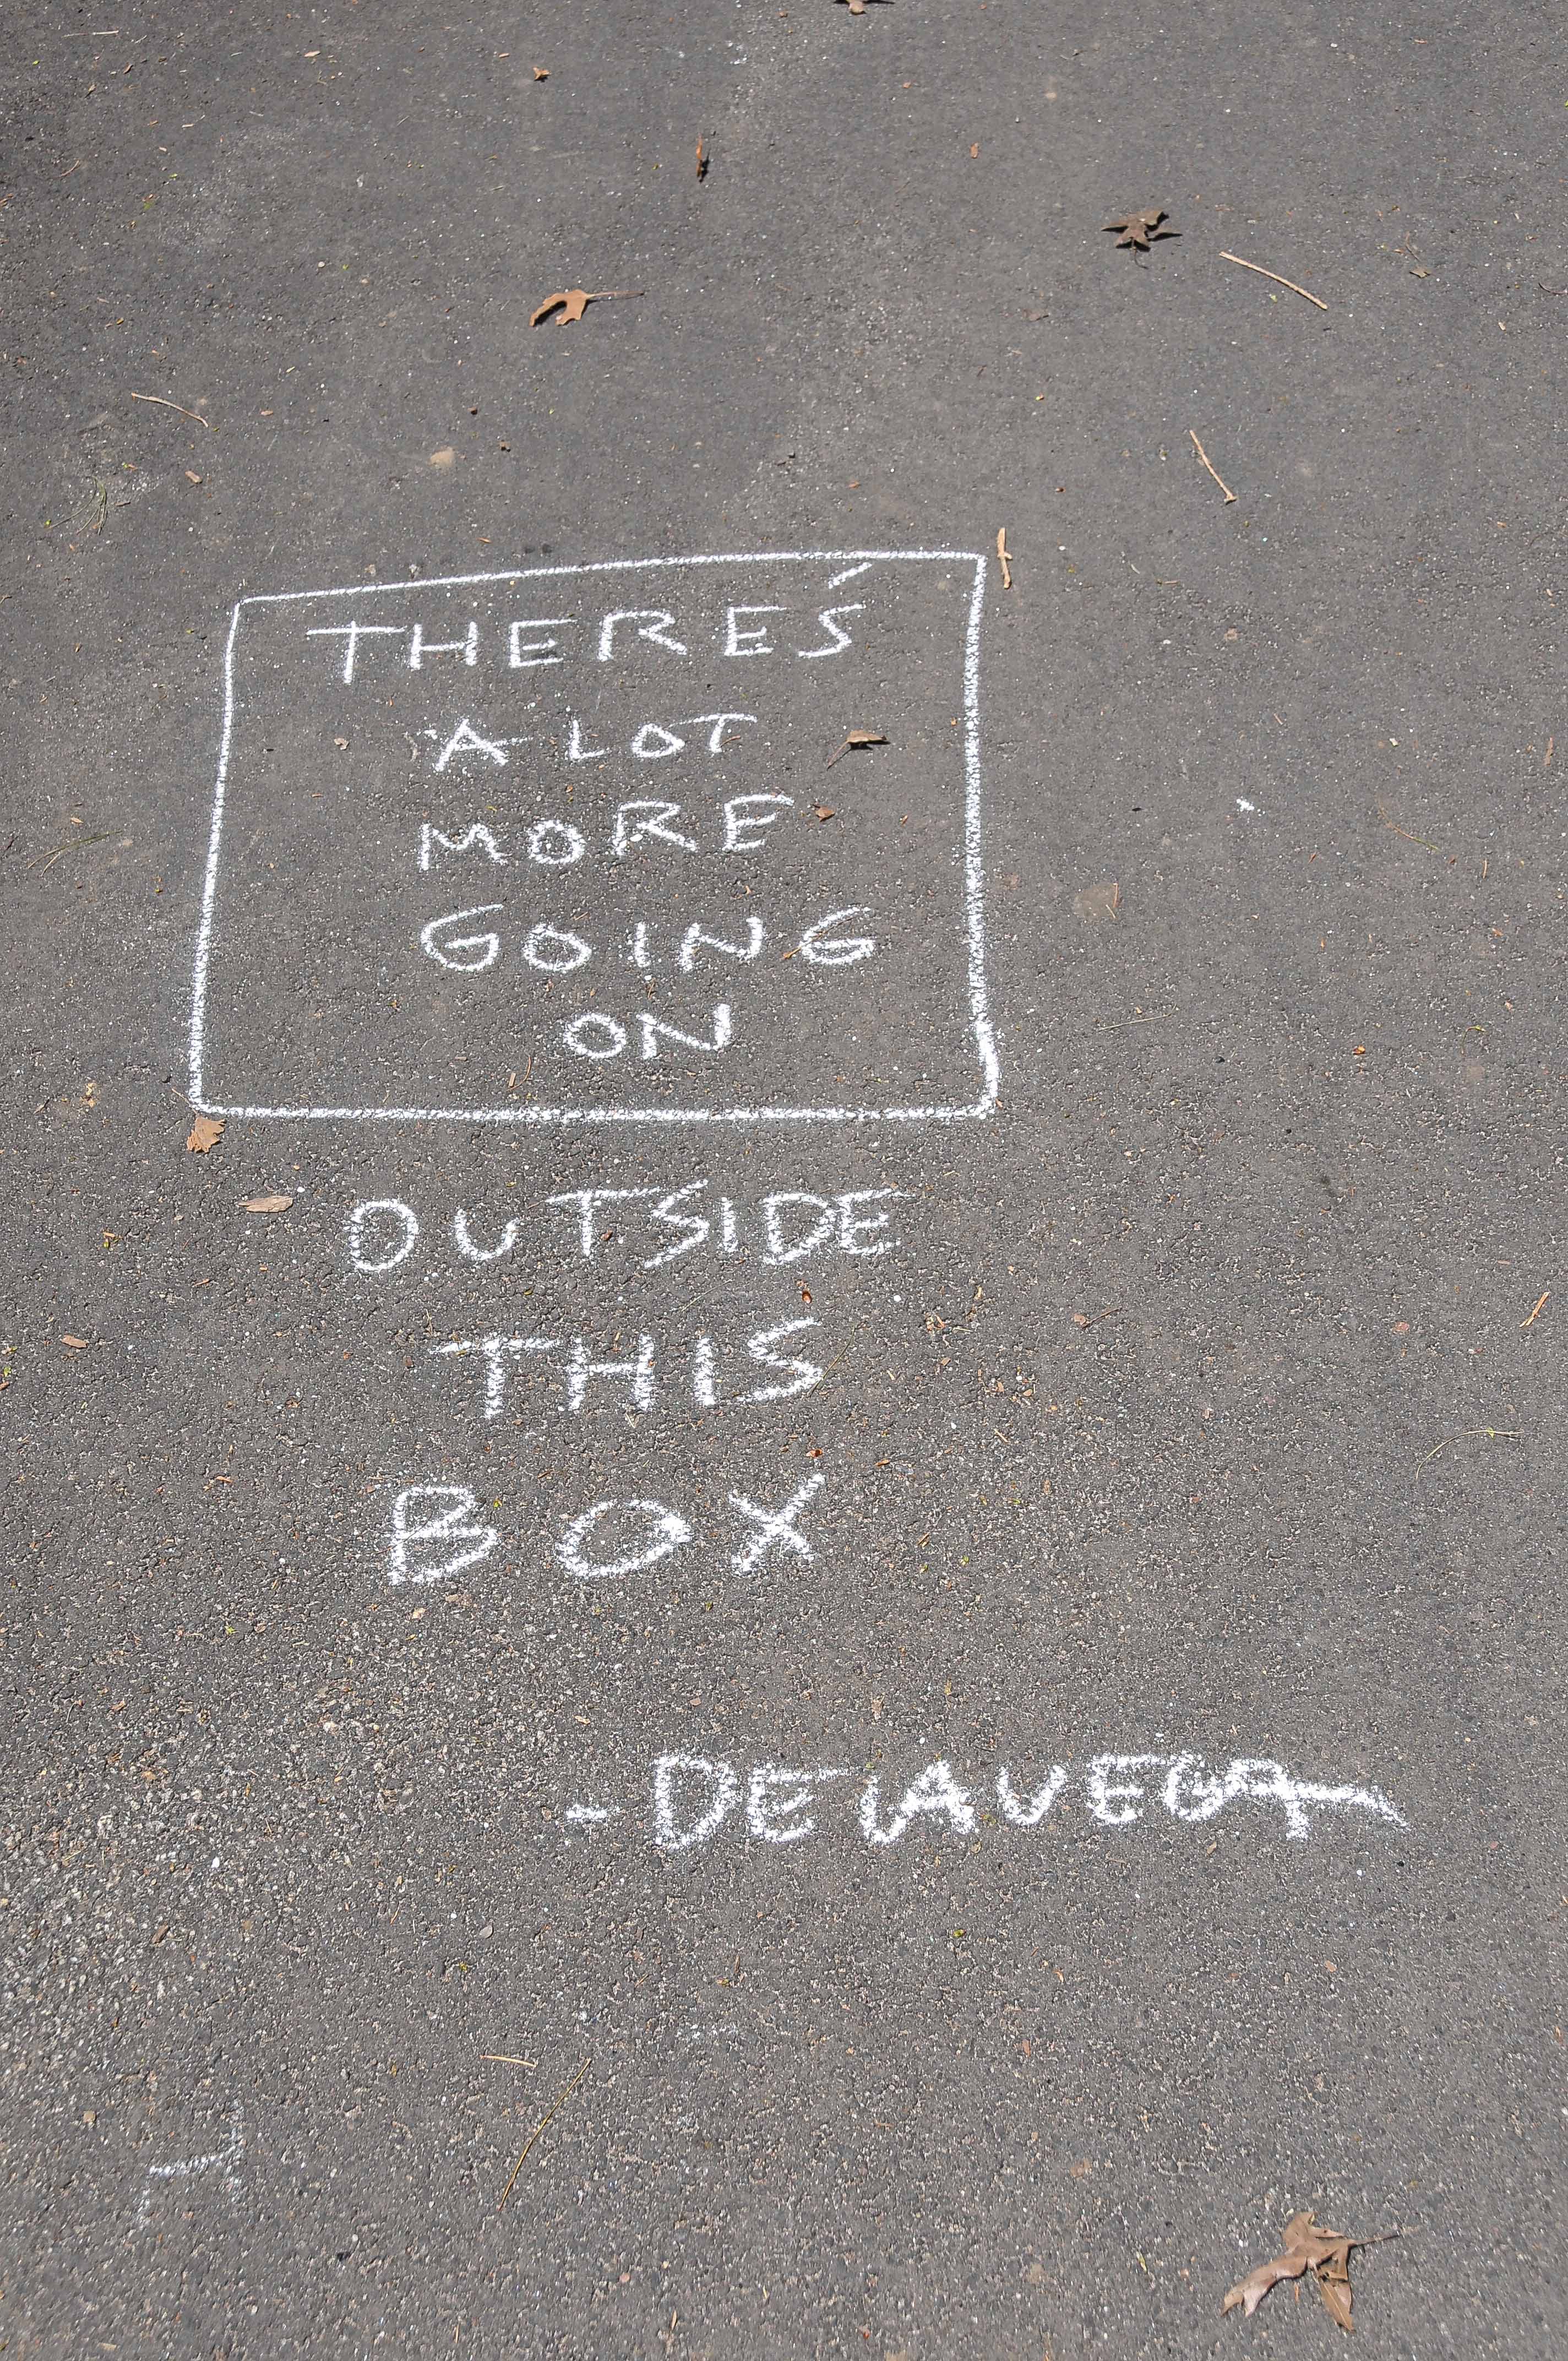 THERE'S
A LOT
MORE
GOING
ON
OUTSIDE
THIS
BOX
- DE LA VEGA